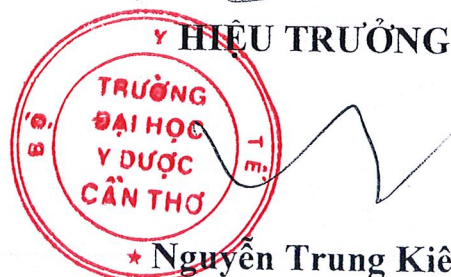 HIỆU TRƯỞNG
BỘ Y TẾ
TRƯỜNG
ĐẠI HỌC
Y DƯỢC
CẦN THƠ
Nguyễn Trung Kiê